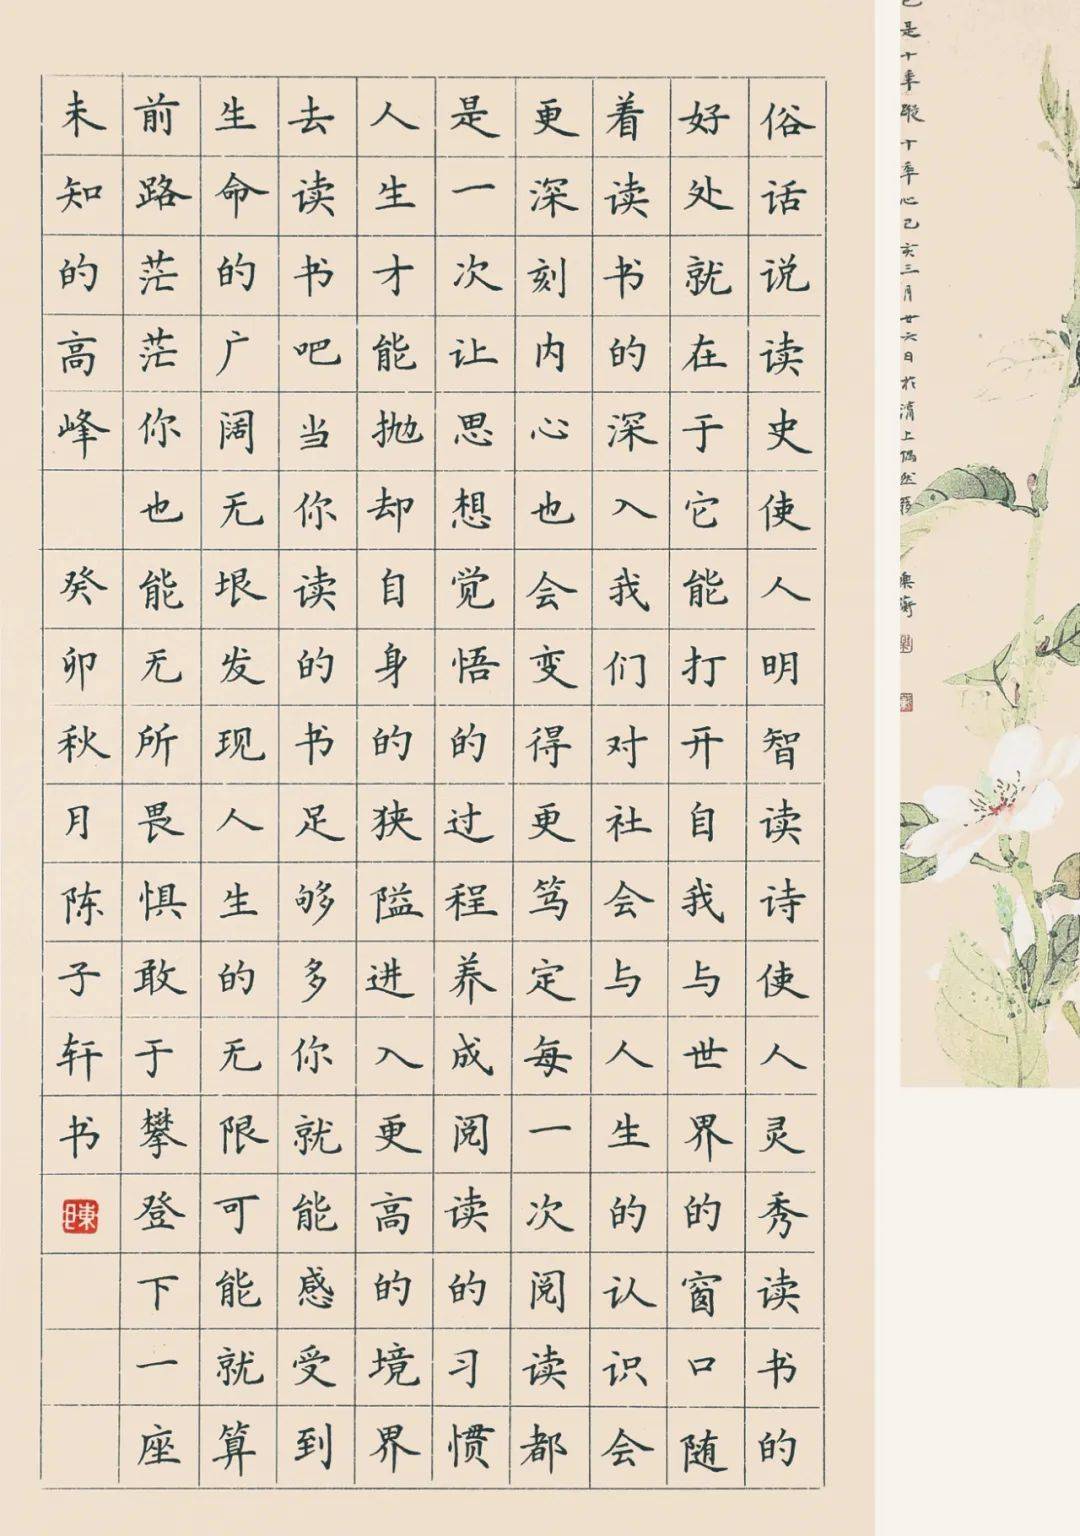 俗话说读史使人明智读诗使人灵秀读书的
好处就在于它能打开自我与世界的窗口随
着读书的深入我们对社会与人生的认识会
更深刻内心也会变得更笃定每一次阅读都
是一次让思想觉悟的过程养成阅读的习惯
人生才能抛却自身的狭隘进入更高的境界
去读书吧当你读的书足够多你就能感受到
生命的广阔无垠发现人生的无限可能就算
前路茫茫你也能无所畏惧敢于攀登下一座
未知的高峰 癸卯秋月陈子轩书 陳
是十年踪十年心己亥三月廿六日於清上偶然